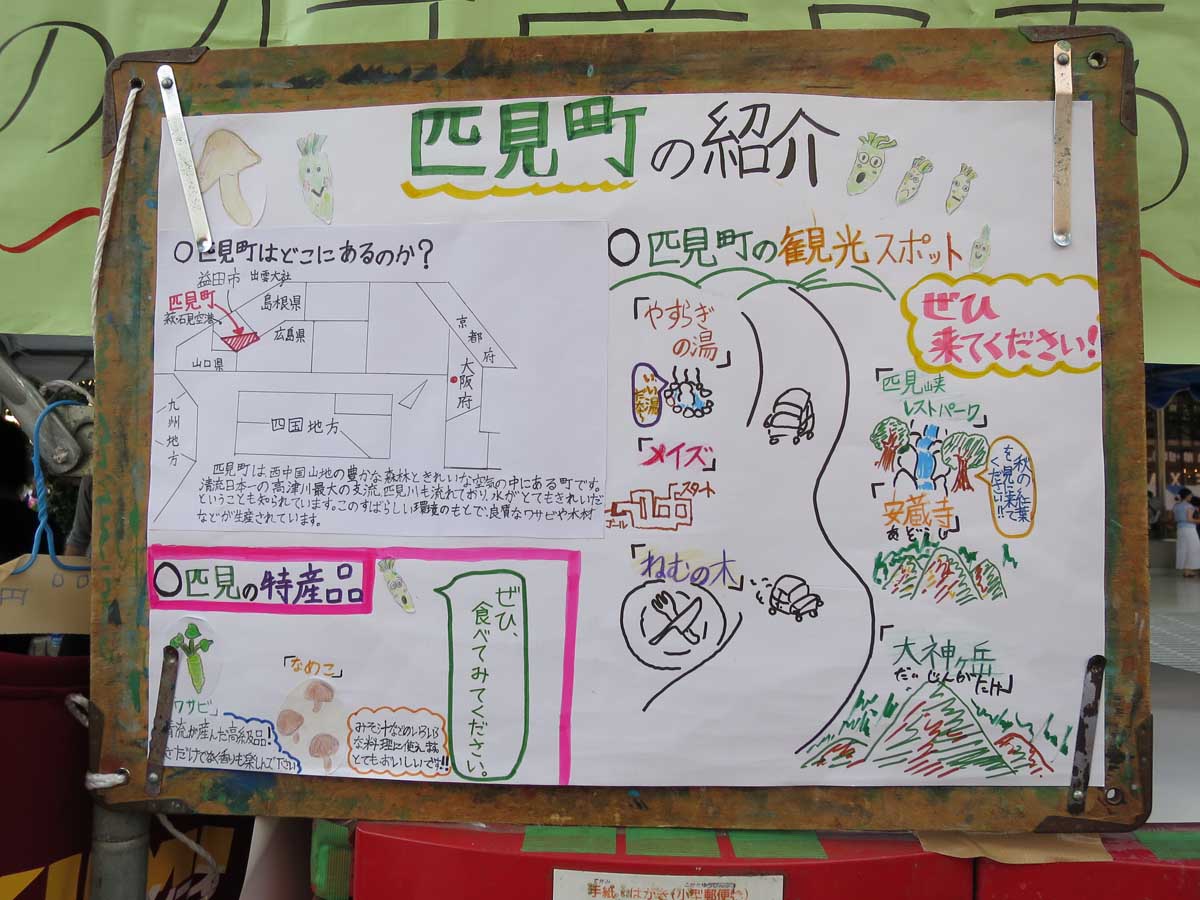 匹見町の紹介
○匹見町はどこにあるのか?
益田市
出雲大社
匹見町
萩・石見空港
島根県
広島県
山口県
京都府
大阪府
九州地方
四国地方
匹見町は西中国山地の豊かな森林ときれいな空気の中にある町です。
清流日本一の高津川最大の支流、匹見川も流れており、水がとてもきれいだ
ということも知られています。このすばらしい環境のもとで、良質なワサビや木材
などが生産されています。
○匹見の特産品
ワサビ」
清流が産んだ高級品!
「なめこ」
みそ汁などのいろいろ
な料理に使え
とてもおいしいです!!
ぜひ、
食べてみてください。
○匹見町の観光スポット
ぜひ
来てください!
「やすらぎ
の湯」
「メイズ」
スタート
ゴール
「ねむの木」
「匹見峡
レストパーク」
秋の紅葉
を見に来て
ください!!
「安蔵寺」
あぞうじ
「大神ヶ岳」
だいじんがたけ
手紙 はがき(小型郵便